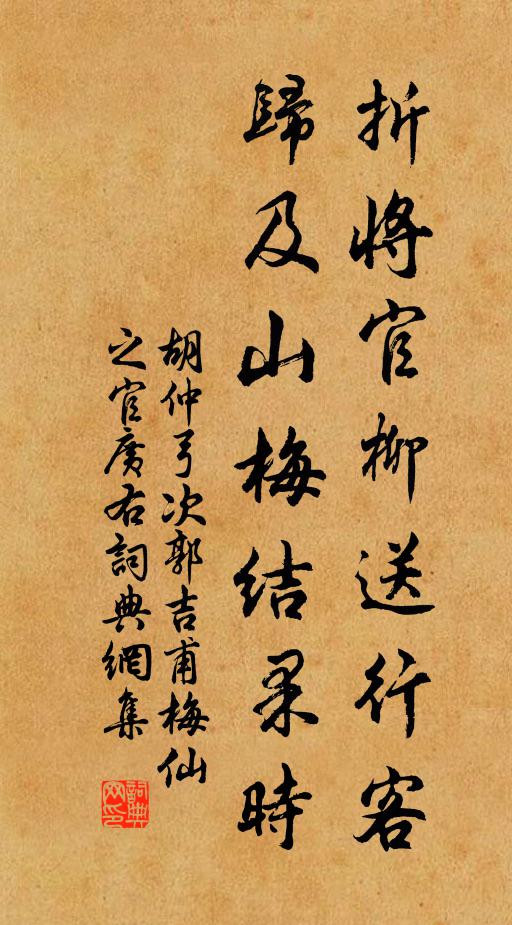 折將官柳送行客
歸及山梅結果時
胡仲弓次郭吉甫梅仙
之官廣右詞典網集
詞典网印